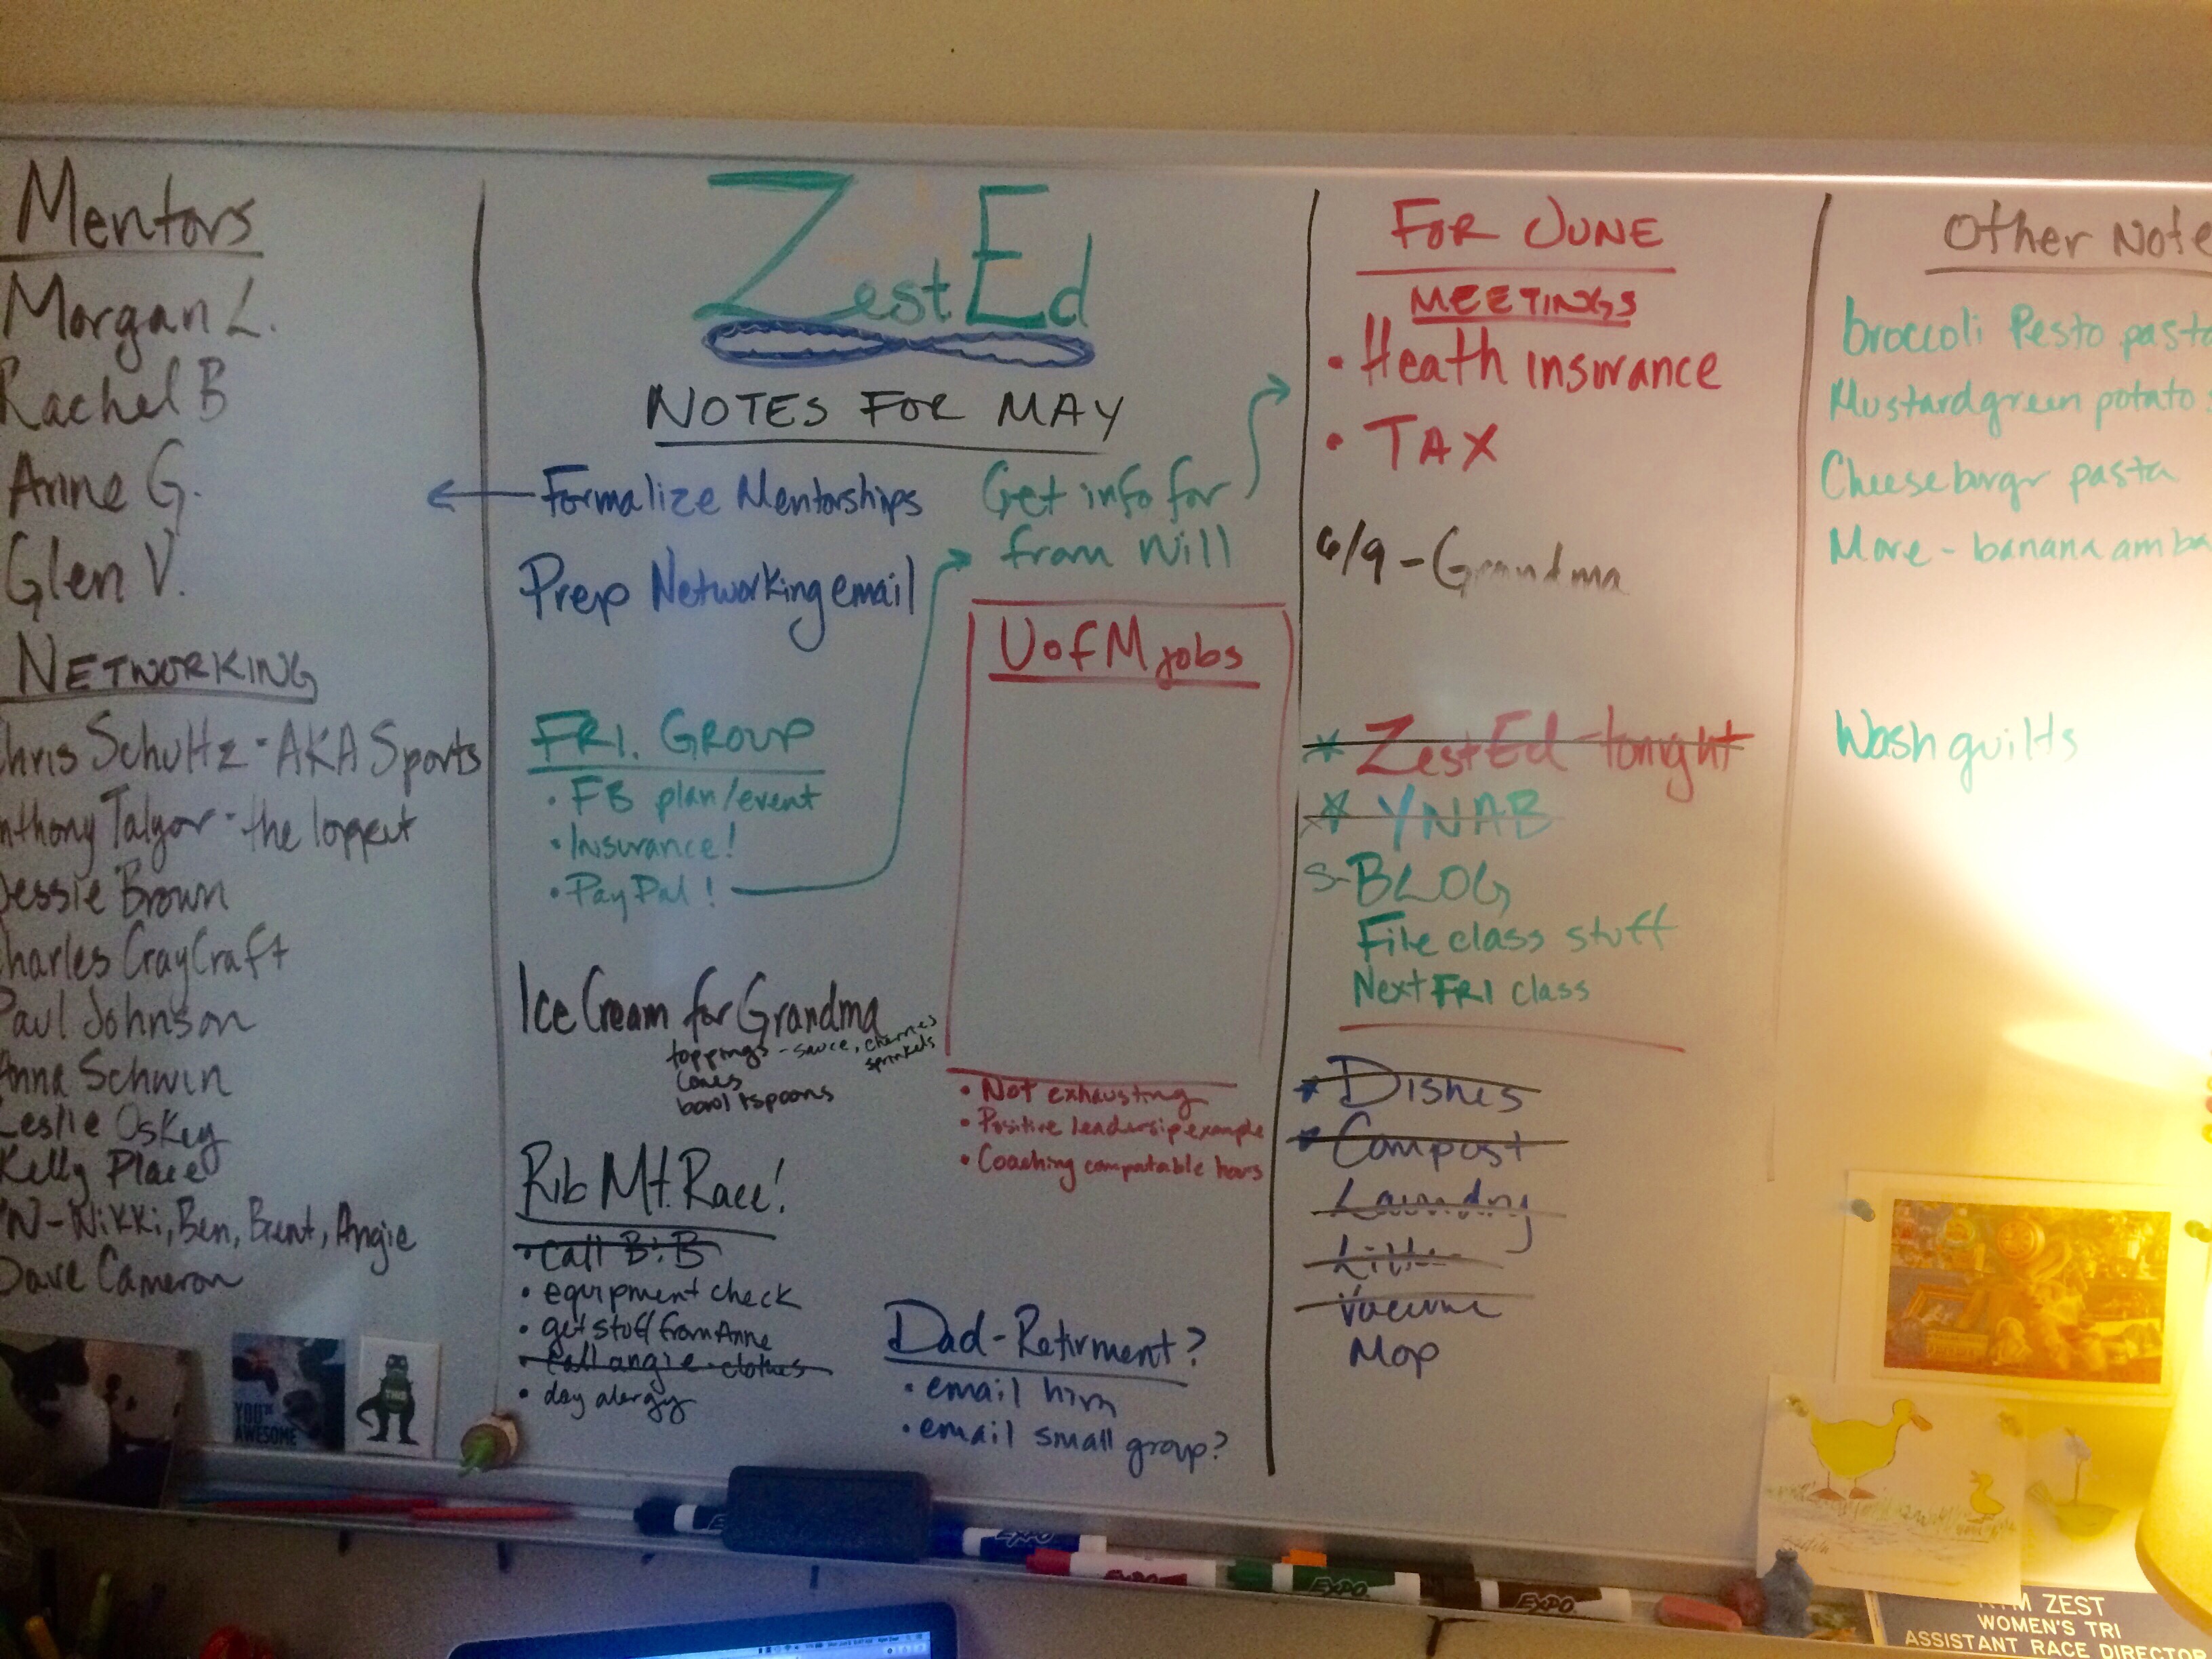 Mentors
Morgan L.
Rachel B
Anne G.
Glen V.
NETWORKING
Chris Schultz - AKA Sports
Anthony Talyor - the loppet
Jessie Brown
Charles CrayCraft
Paul Johnson
Anna Schwin
Leslie Oskey
Kelly Place
N-Nikki, Ben, Brent, Angie
Dave Cameron
ZestEd
NOTES FOR MAY
Formalize Mentorships
Prep Networking email
Get info for
from Will
FRI. GROUP
• FB plan/event
• Insurance!
• PayPal!
UofM jobs
• Not exhausting
• Positive leadersip example
• Coaching compatable hours
Ice Cream for Grandma
toppings - sauce, cherries
sprinkels
cones
bowl + spoons
Rib Mt. Race!
• call B:B
• equipment check
• get stuff from Anne
• call angie - clothes
• day alergy
Dad-Retirment?
• email him
• email small group?
FOR JUNE
MEETINGS
• Heath insurance
• TAX
6/9 - Grandma
* ZestEd - tonight
* YNAB
S- BLOG
File class stuff
Next FRI class
* Dishes
* Compost
Laundry
Vacume
Mop
Other Note
broccoli Pesto pasta
Mustardgreen potato
Cheeseburgr pasta
More - banana am ba
Wash quilts
YOU'RE
AWESOME
THIS
EXPO
EXPO
EXPO
EXPO
KYM ZEST
WOMEN'S TRI
ASSISTANT RACE DIRECTOR